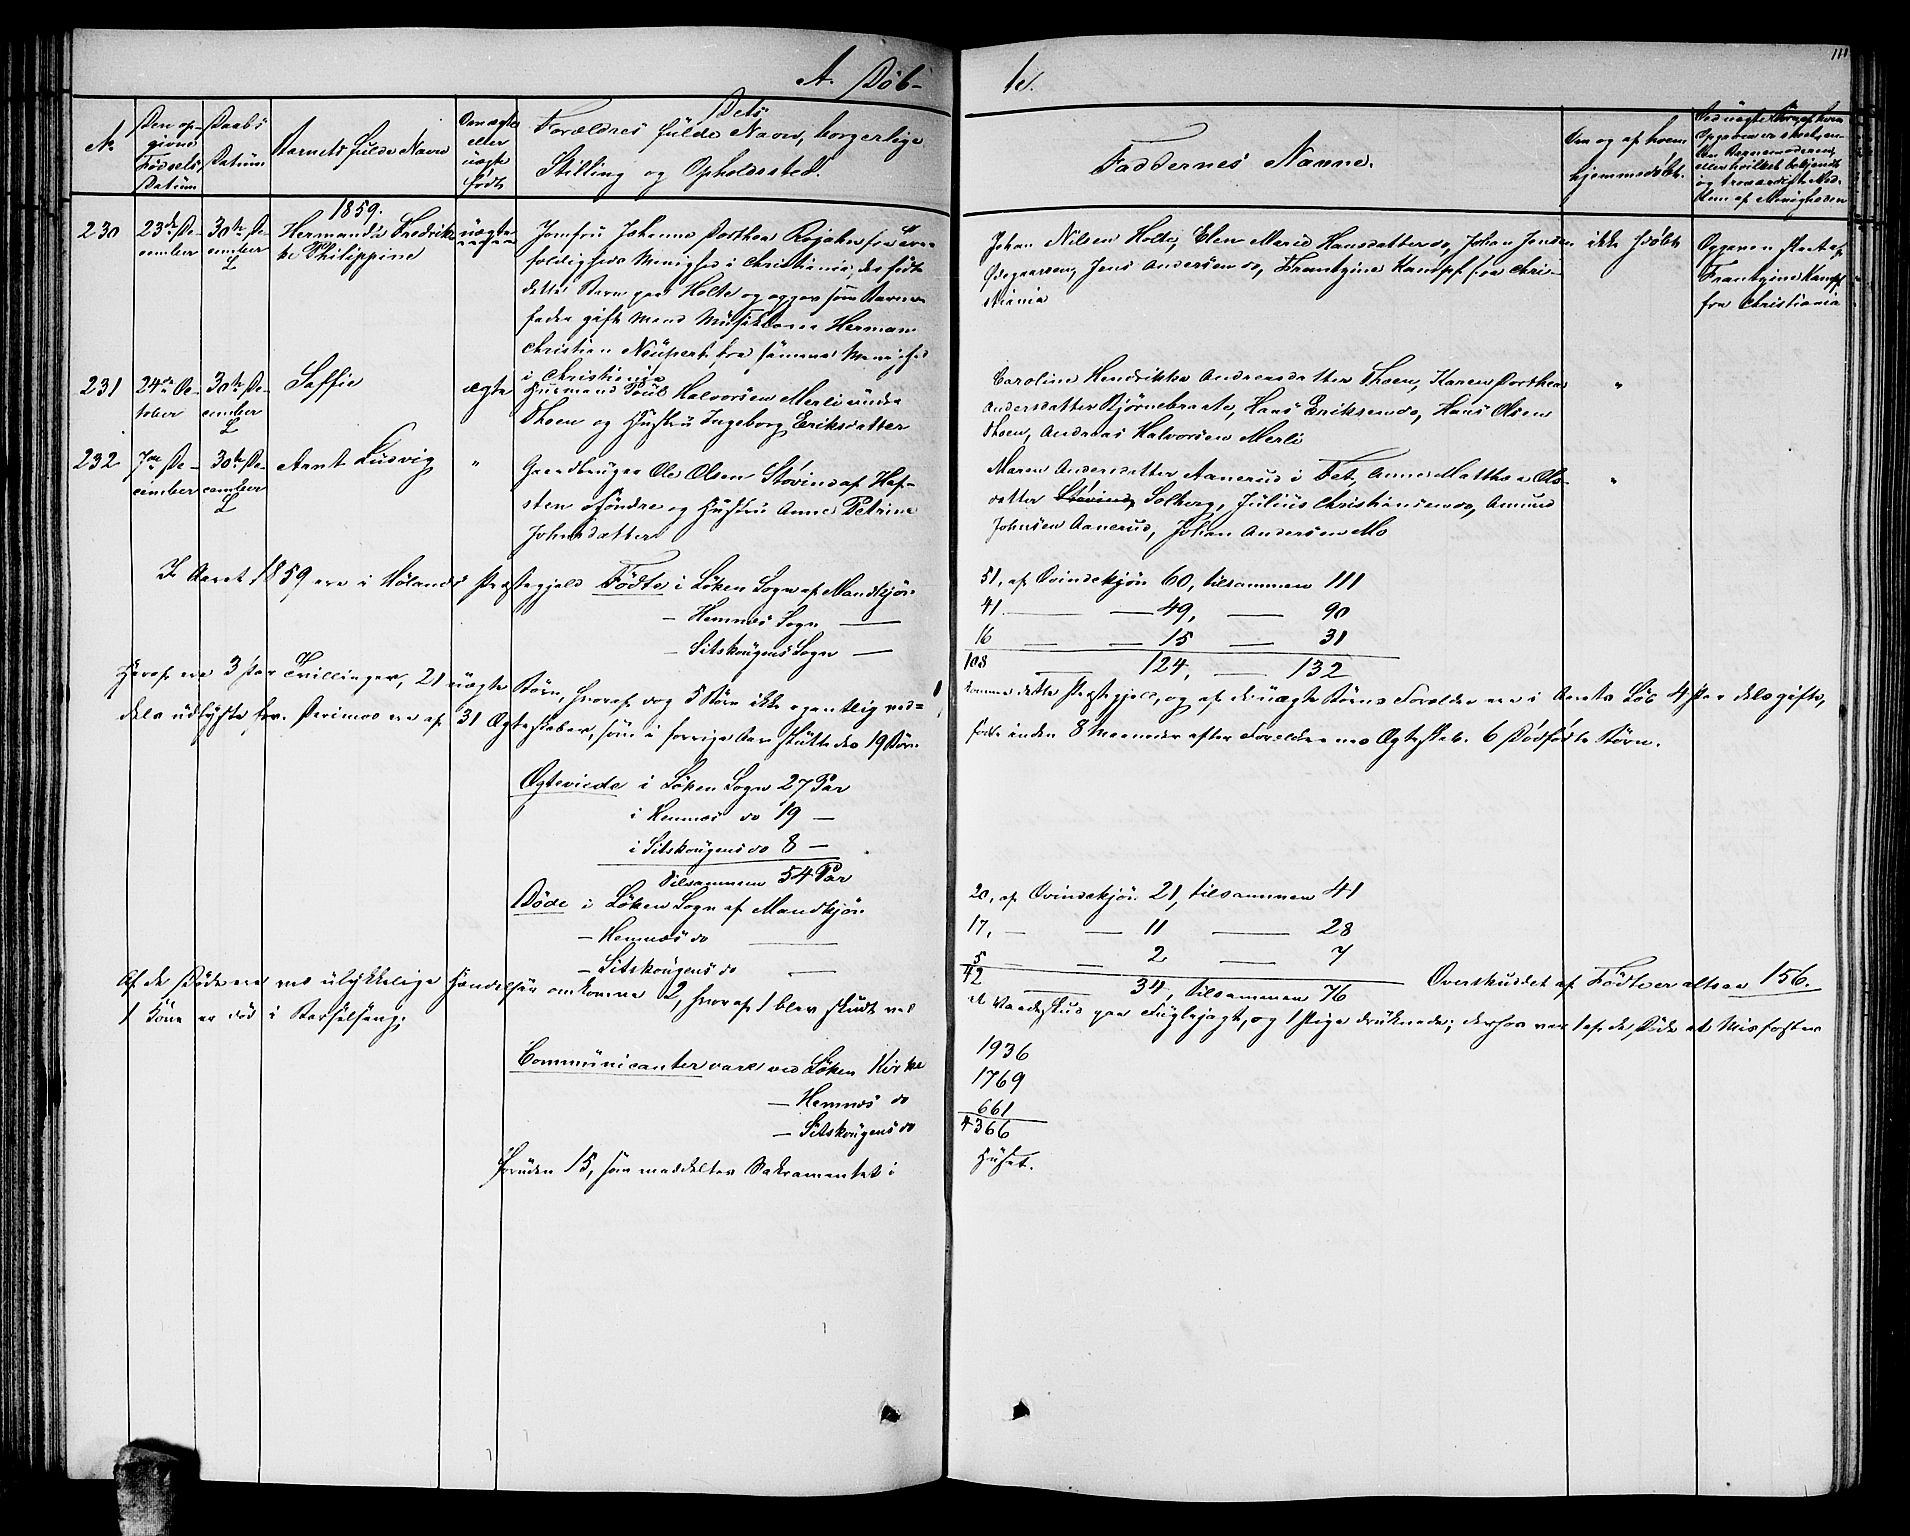 111
A. Døb-
te.
No
Den op-
givne
Fødsels
Datum
Daabs
Datum
Barnets fulde Navn
Om ægte
eller
uægte
født
Dets
Forældres fulde Navn, borgerlige
Stilling og Opholdssted.
Faddernes Navne.
Om og af hvem
hjemmedøbt.
1859.
230
23de De-
cember
30te De-
cember
L
Hermanda Fredrik-
ke Philippine
uægte
Jomfru Johanne Dorthea
foldigheds Menighed i Christiania, der fødte
dette Barn paa Holte og opgav som Barne-
fader gift Mand Musiklærer Herman
Christian Neupert fra samme Menighed
i Christiania
Johan Nilsen Holte, Elen Marie Hansdatter do, Johan Jensen
Jens Andersen do, Frantzine Kampf fra Chri-
stiania
ikke hjdøbt
Opgaven skeet af
Frantzine Kampf
fra Christiania
231
24de Oc-
tober
30te De-
cember
L
Saffie
ægte
Husmand Poul Halvorsen Merli under
Thoen og Hustru Ingeborg Eriksdatter
Caroline Hendrikke Andreasdatter Thoen, Karen Dorthea
Andersdatter Bjørnebraate, Hans Eriksen do, Hans Olsen
Thoen, Andreas Halvorsen Merli
"
232
7de De-
cember
30te De-
cember
L
Arnt Ludvig
"
Gaardbruger Ole Olsen Støvind af Haf-
sten søndre og Hustru Anne Petrine
Johnsdatter
Maren Andersdatter Aanerud i Fet, Anne Matthea Ols-
datter Støvind, Solberg, Julius Christiansen do, Amund
Johnsen Aanerud, Johan Andersen Mo
"
I Aaret 1859 ere i Hølands Præstegjeld Fødte i Løken Sogn af Mandkjøn
51, af Qvindekjøn 60, tilsammen 111
- Hemnes Sogn —
41 — — 49, — 90
- Sitskougens Sogn —
16 — — 15 — 31
108 — 124, — 132
Heraf ere 3 Par Tvillinger, 21 uægte Børn, hvoraf dog 5 Børn ikke egentlig ved-
komme dette Præstegjeld, og af de uægte Børns Forældre ere i Aarets Løb 4 Par dels gifte,
dels udlyste for. Derimod ere af 31 Ægteskaber, som i forrige Aar stiftedes 19 Børn
født inden 8 Maaneder efter Forældrenes Ægteskab. 6 Dødfødte Børn.
Ægteviede i Løken Sogn 27 Par
i Hemnes do 19 —
i Sitskougens do 8 —
Tilsammen 54 Par
Døde i Løken Sogn af Mandkjøn
20, af Qvindekjøn 21, tilsammen 41
- Hemnes do —
17, — — 11 — 28
- Sitskougens do —
5 — 2 — 7
42 — 34, tilsammen 76 Overskuddet af Fødte er altsaa 156.
Af de Døde ere ved ulykkelige Hændelser omkomne 2, hvoraf 1 blev skudt ved
et Vaadeskud paa Fuglejagt, og 1 Pige druknede; derhos var 1 af de Døde et Misfoster
1 Kone er død i Barselseng;
Communicanter vare ved Løken Kirke
1936
- Hemnes do
1769
- Sitskougens do
661
4366
Foruden 15, som meddeltes Sakramentet i
Huset.